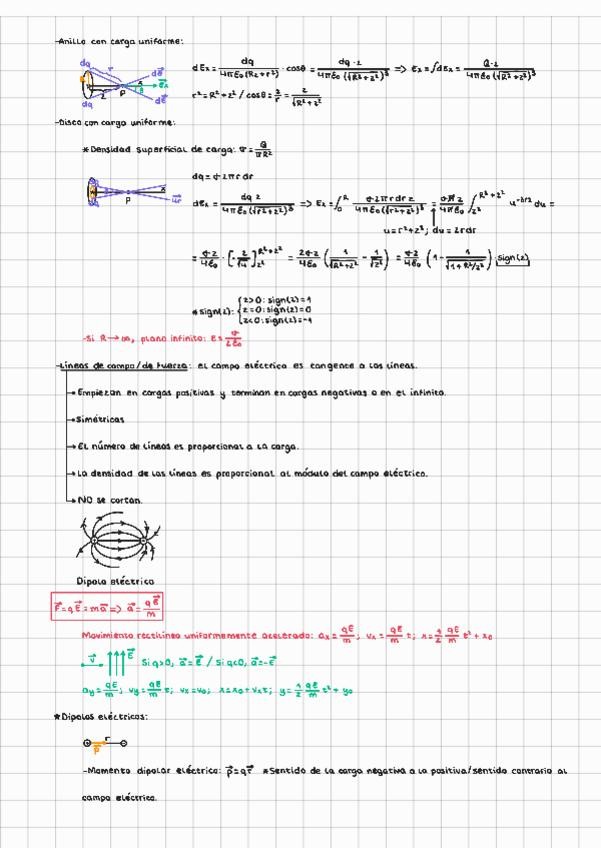 -Anillo con carga uniforme:
dq r dE⃗
P z θ E⃗x
dq dE⃗
dEx = dq / 4πε₀(R²+r²) · cosθ = dq·z / 4πε₀(√R²+z²)³ => Ex = ∫dEx = Q·z / 4πε₀(√R²+z²)³
r² = R²+z² / cosθ = z/r = z/√R²+z²
-Disco con carga uniforme:
*Densidad superficial de carga: σ = Q/πR²
dq = σ·2πr dr
P
dEx = dq·z / 4πε₀(√r²+z²)³ => Ex = ∫₀ᴿ σ·2πr dr z / 4πε₀(√r²+z²)³ = σπz/4πε₀ ∫_z²^R²+z² u^-3/2 du =
u = r²+z²; du = 2rdr
= σ·z/4ε₀ · [-2/√u]_z²^R²+z² = 2σ·z/4ε₀ (1/√R²+z² - 1/√z²) = σ·z/4ε₀ (1 - 1/√1+R²/z²) · sign(z)
*sign(z): { z>0: sign(z)=1
z=0: sign(z)=0
z<0: sign(z)=-1
-Si R→∞, plano infinito: E = σ/2ε₀
-Líneas de campo/de fuerza: el campo eléctrico es tangente a las líneas.
→Empiezan en cargas positivas y terminan en cargas negativas o en el infinito.
→Simétricas
→El número de líneas es proporcional a la carga.
→La densidad de las líneas es proporcional al módulo del campo eléctrico.
→NO se cortan.
Dipolo eléctrico
F⃗ = qE⃗ = ma⃗ => a⃗ = qE⃗/m
Movimiento rectilíneo uniformemente acelerado: ax = qE/m; vx = qE/m t; x = 1/2 qE/m t² + x₀
v⃗ E⃗ Si q>0, a⃗=E⃗ / Si q<0, a⃗=-E⃗
ay = qE/m; vy = qE/m t; vx = v₀; x = x₀ + vxt; y = 1/2 qE/m t² + y₀
*Dipolos eléctricos:
r
p⃗
-Momento dipolar eléctrico: p⃗ = qr⃗ *Sentido de la carga negativa a la positiva/sentido contrario al
campo eléctrico.